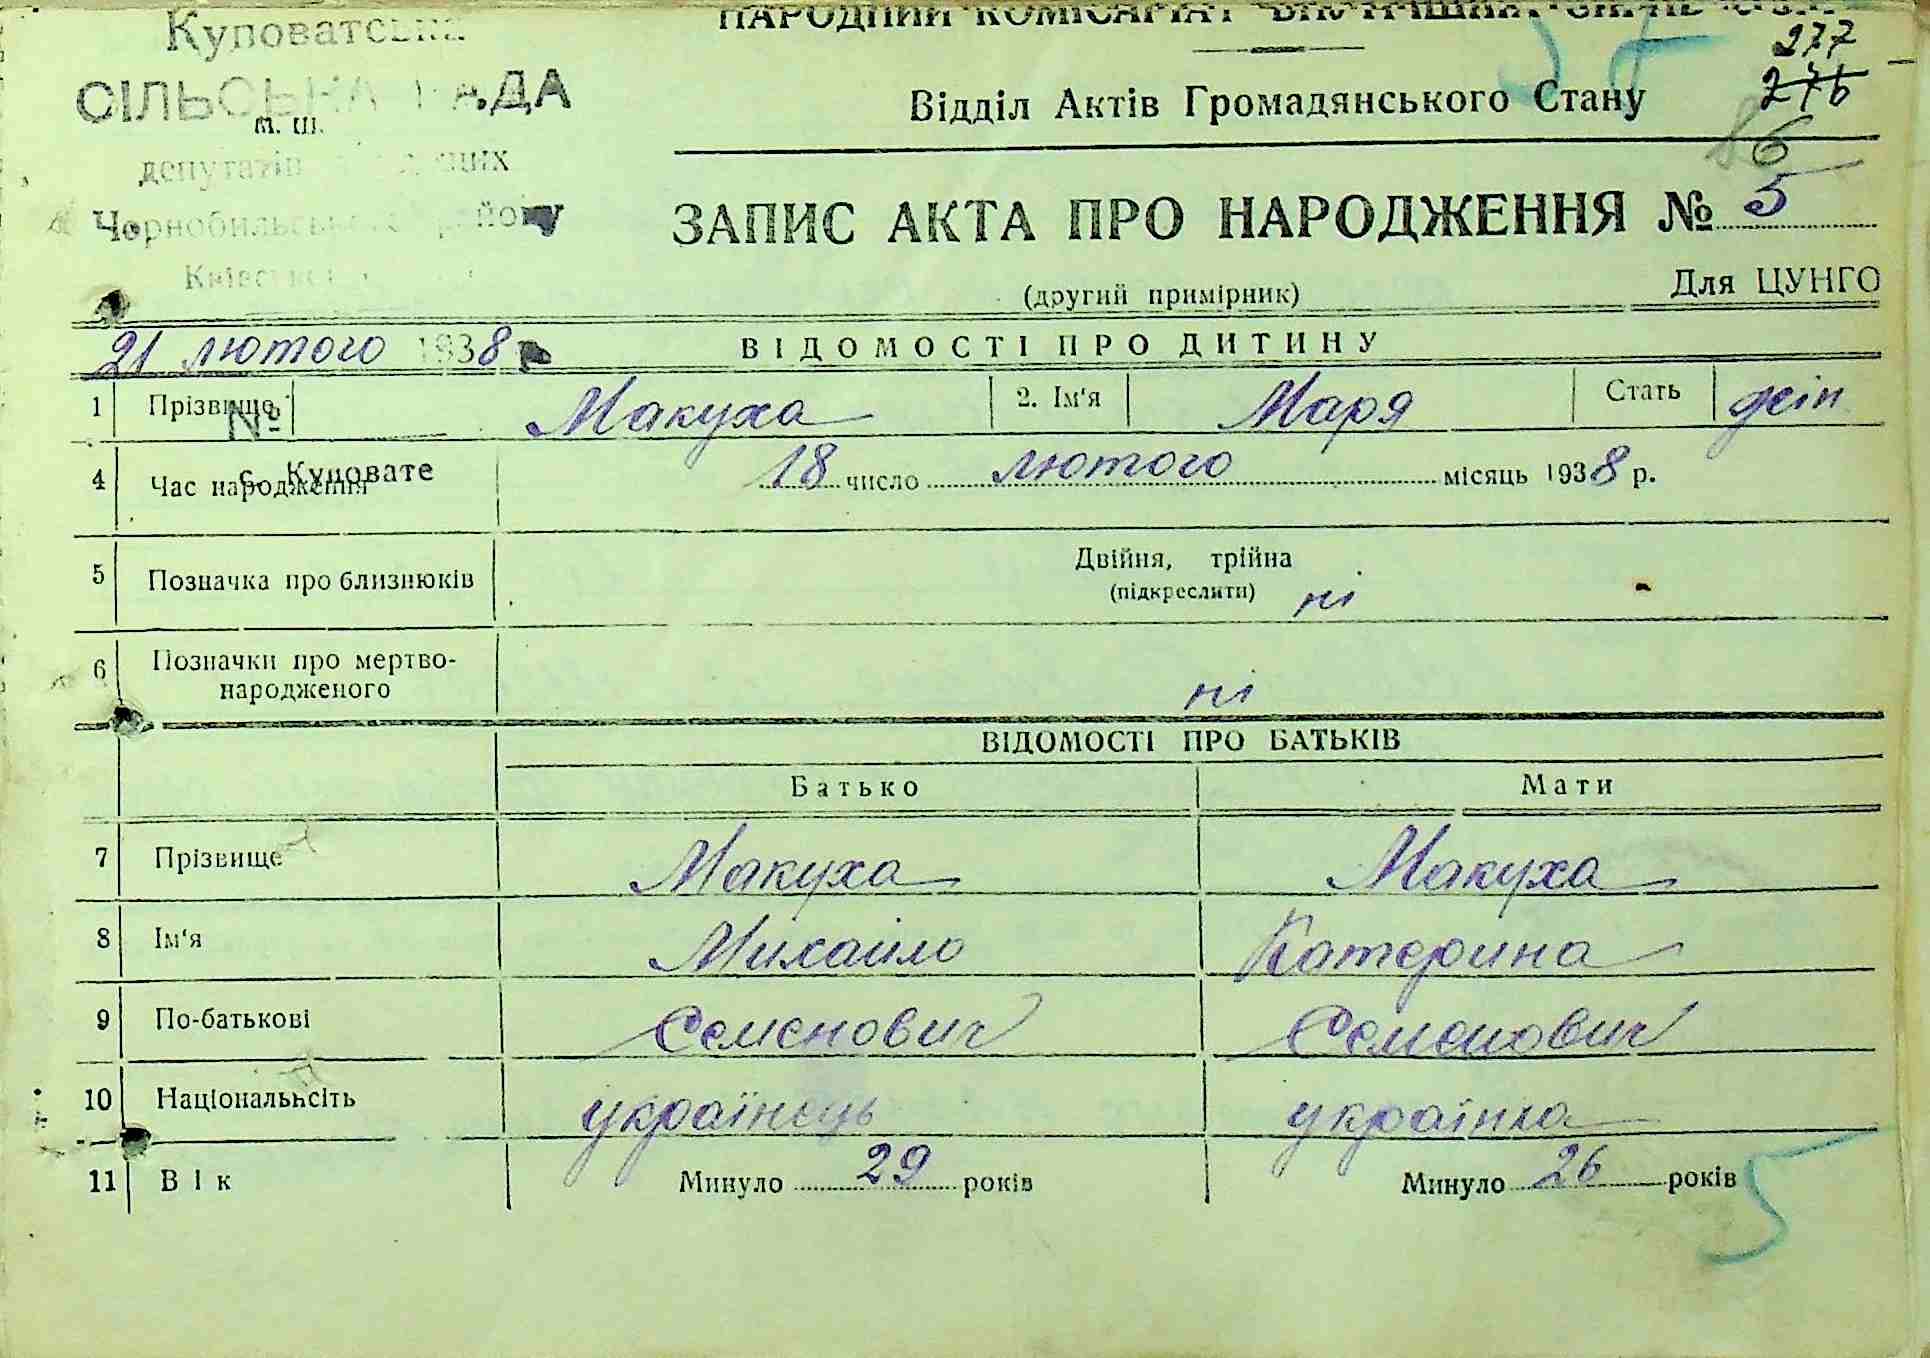 Куповатська
СІЛЬСЬКА РАДА
депутатів
Чорнобильського району
НАРОДНИЙ КОМІСАРІАТ ВНУТРІШНІХ СПРАВ
277
276
86
Відділ Актів Громадянського Стану
ЗАПИС АКТА ПРО НАРОДЖЕННЯ № 5
(другий примірник)
Для ЦУНГО
21 лютого 1938 р.
ВІДОМОСТІ ПРО ДИТИНУ
1 Прізвище Макуха 2. Ім'я Маря Стать
№
с. Куповате
4 Час народження 18 число лютого місяць 1938 р.
5 Позначка про близнюків Двійня, трійна
(підкреслити) ні
6 Позначки про мертво-
народженого ні
ВІДОМОСТІ ПРО БАТЬКІВ
Батько Мати
7 Прізвище Макуха Макуха
8 Ім'я Михайло Катерина
9 По-батькові Семенович Семенович
10 Національнсіть українець українка
11 Вік Минуло 29 років Минуло 26 років
5